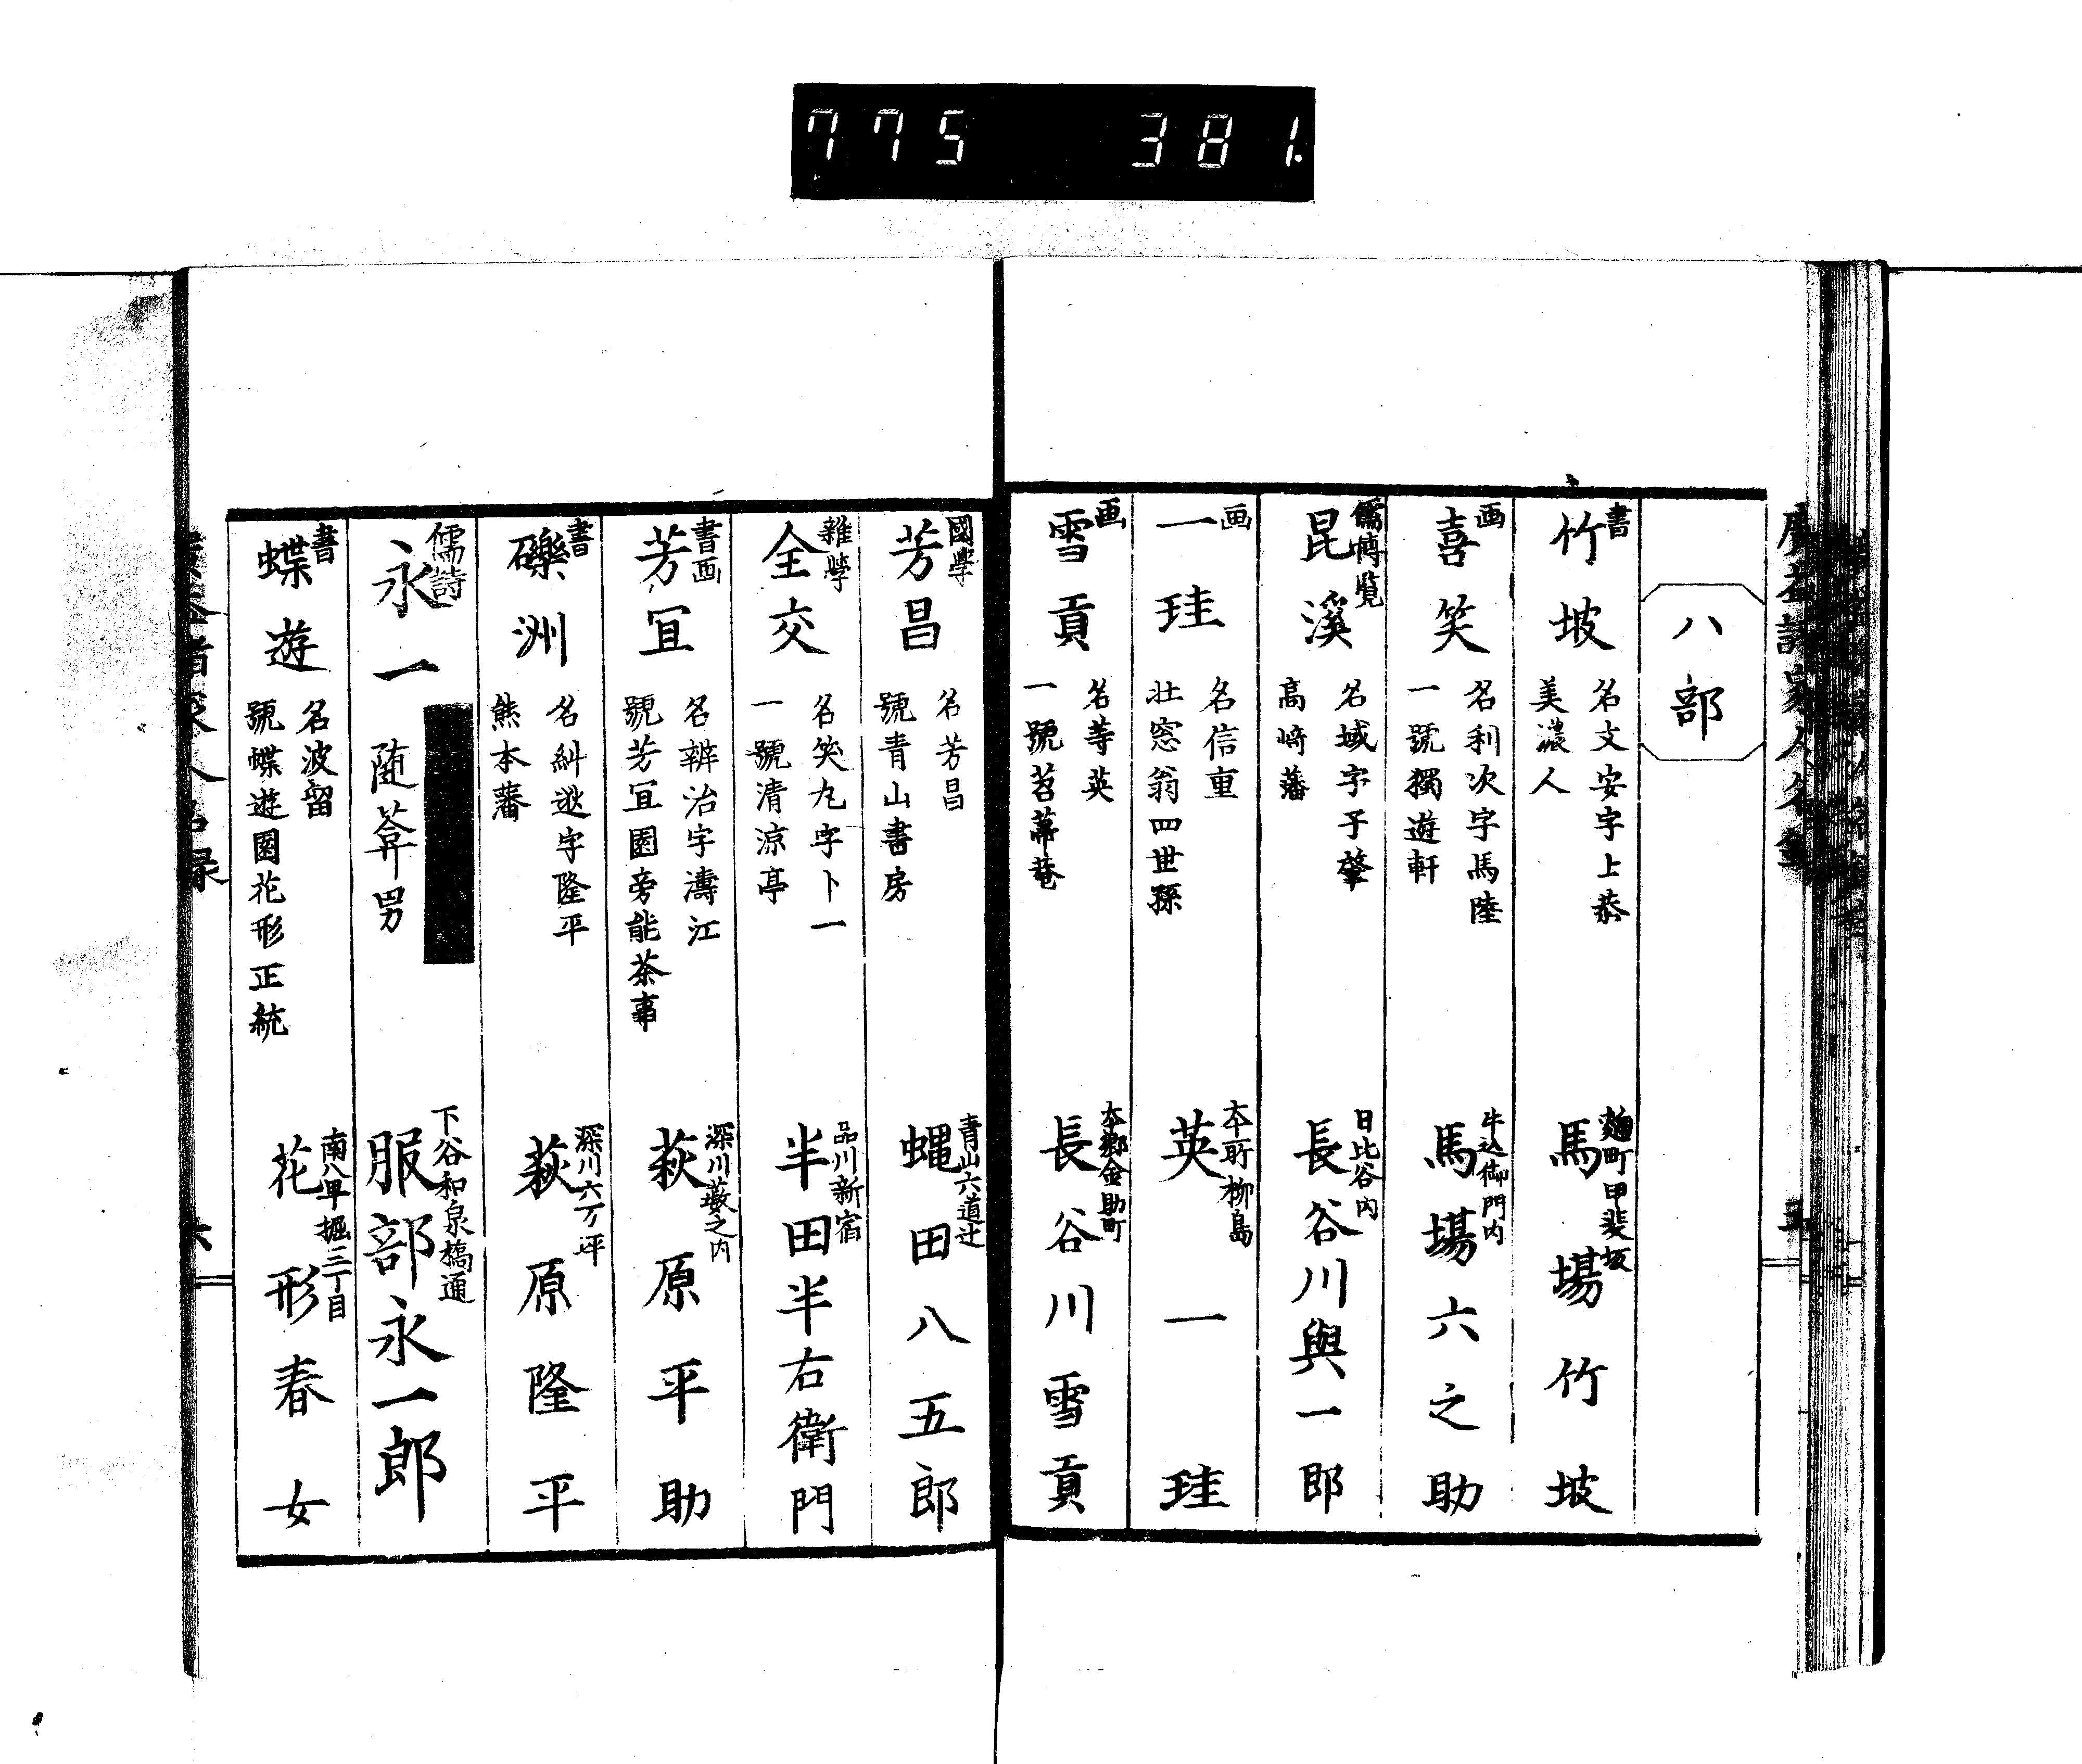 775 381.
八部
書
竹坡
名文安字上恭
美濃人
麹町甲斐坂
馬場竹坡
画
喜笑
名利次字馬陸
一號獨遊軒
牛込御門内
馬場六之助
儒博覧
昆溪
名域字子肇
高崎藩
日比谷内
長谷川與一郎
画
一珪
名信重
壮窓翁四世孫
本所柳島
英一珪
画
雪貢
名等英
一號苕蕳菴
本郷金助町
長谷川雪貢
國學
芳昌
名芳昌
號青山書房
青山六道辻
蝿田八五郎
雜學
全交
名笑九字卜一
一號清涼亭
品川新宿
半田半右衛門
書画
芳宜
名辨治字濤江
號芳宜園旁能茶事
深川藪之内
萩原平助
書
礫洲
名糾逖字隆平
熊本藩
深川六万坪
萩原隆平
儒詩
永一
随葊男
下谷和泉橋通
服部永一郎
書
蝶遊
名波留
號蝶遊園花形正統
南八早堀三丁目
花形春女
廣益諸家人名錄
五
六